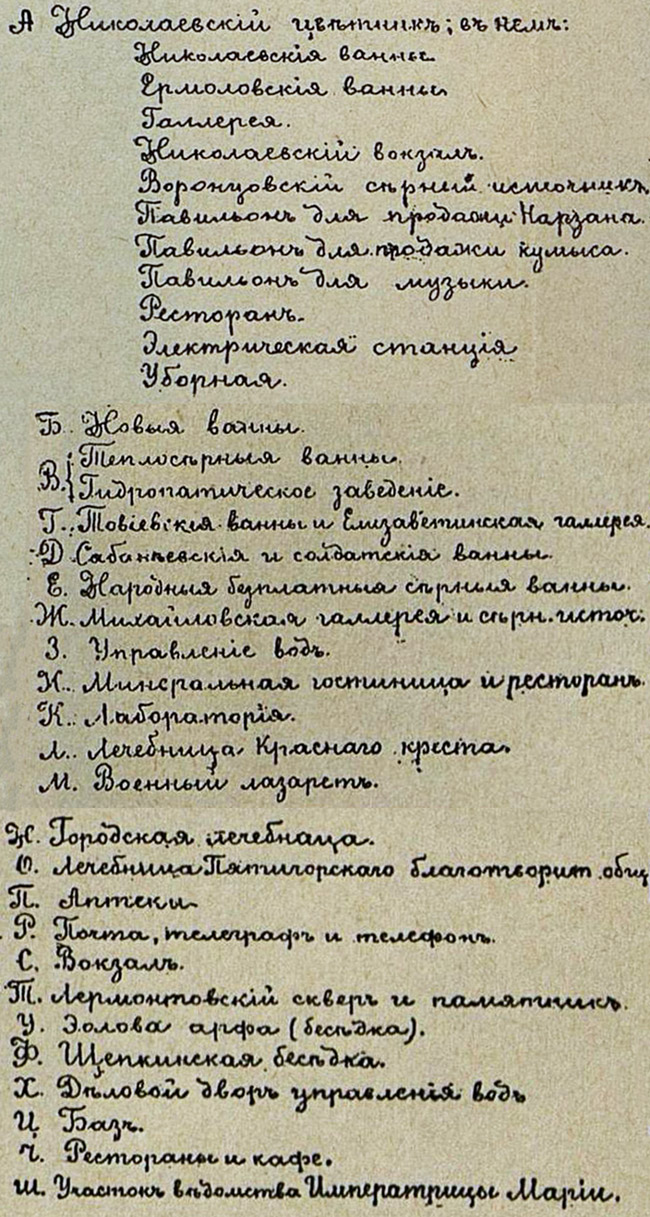 А Николаевскій цвѣтникъ; въ немъ:
Николаевскія ванны
Ермоловскія ванны
Галлерея.
Николаевскій вокзалъ.
Воронцовскій сѣрный источникъ
Павильонъ для продажи Нарзана.
Павильонъ для продажи кумыса.
Павильонъ для музыки.
Ресторанъ.
Электрическая станція
Уборная.
Б. Новыя ванны.
В. { Теплосѣрныя ванны.
Гидропатическое заведеніе.
Г. Товіевскія ванны и Елизаветинская галлерея.
Д. Сабанѣевскія и солдатскія ванны.
Е. Народныя безплатныя сѣрныя ванны.
Ж. Михайловская галлерея и сѣрн. источ.
З. Управленіе водъ.
И. Минеральная гостиница и ресторанъ.
К. Лабораторія.
Л. Лечебница Краснаго креста.
М. Военный лазаретъ.
Н. Городская лечебница.
О. Лечебница Пятигорскаго благотворит. общ
П. Аптеки
Р. Почта, телеграфъ и телефонъ.
С. Вокзалъ.
Т. Лермонтовскій скверъ и памятникъ.
У. Эолова арфа (бесѣдка).
Ф. Щепкинская бесѣдка.
Х. Дѣловой дворъ управленія водъ
Ц Базъ.
Ч. Рестораны и кафе.
Ш. Участокъ вѣдомства Императрицы Маріи.